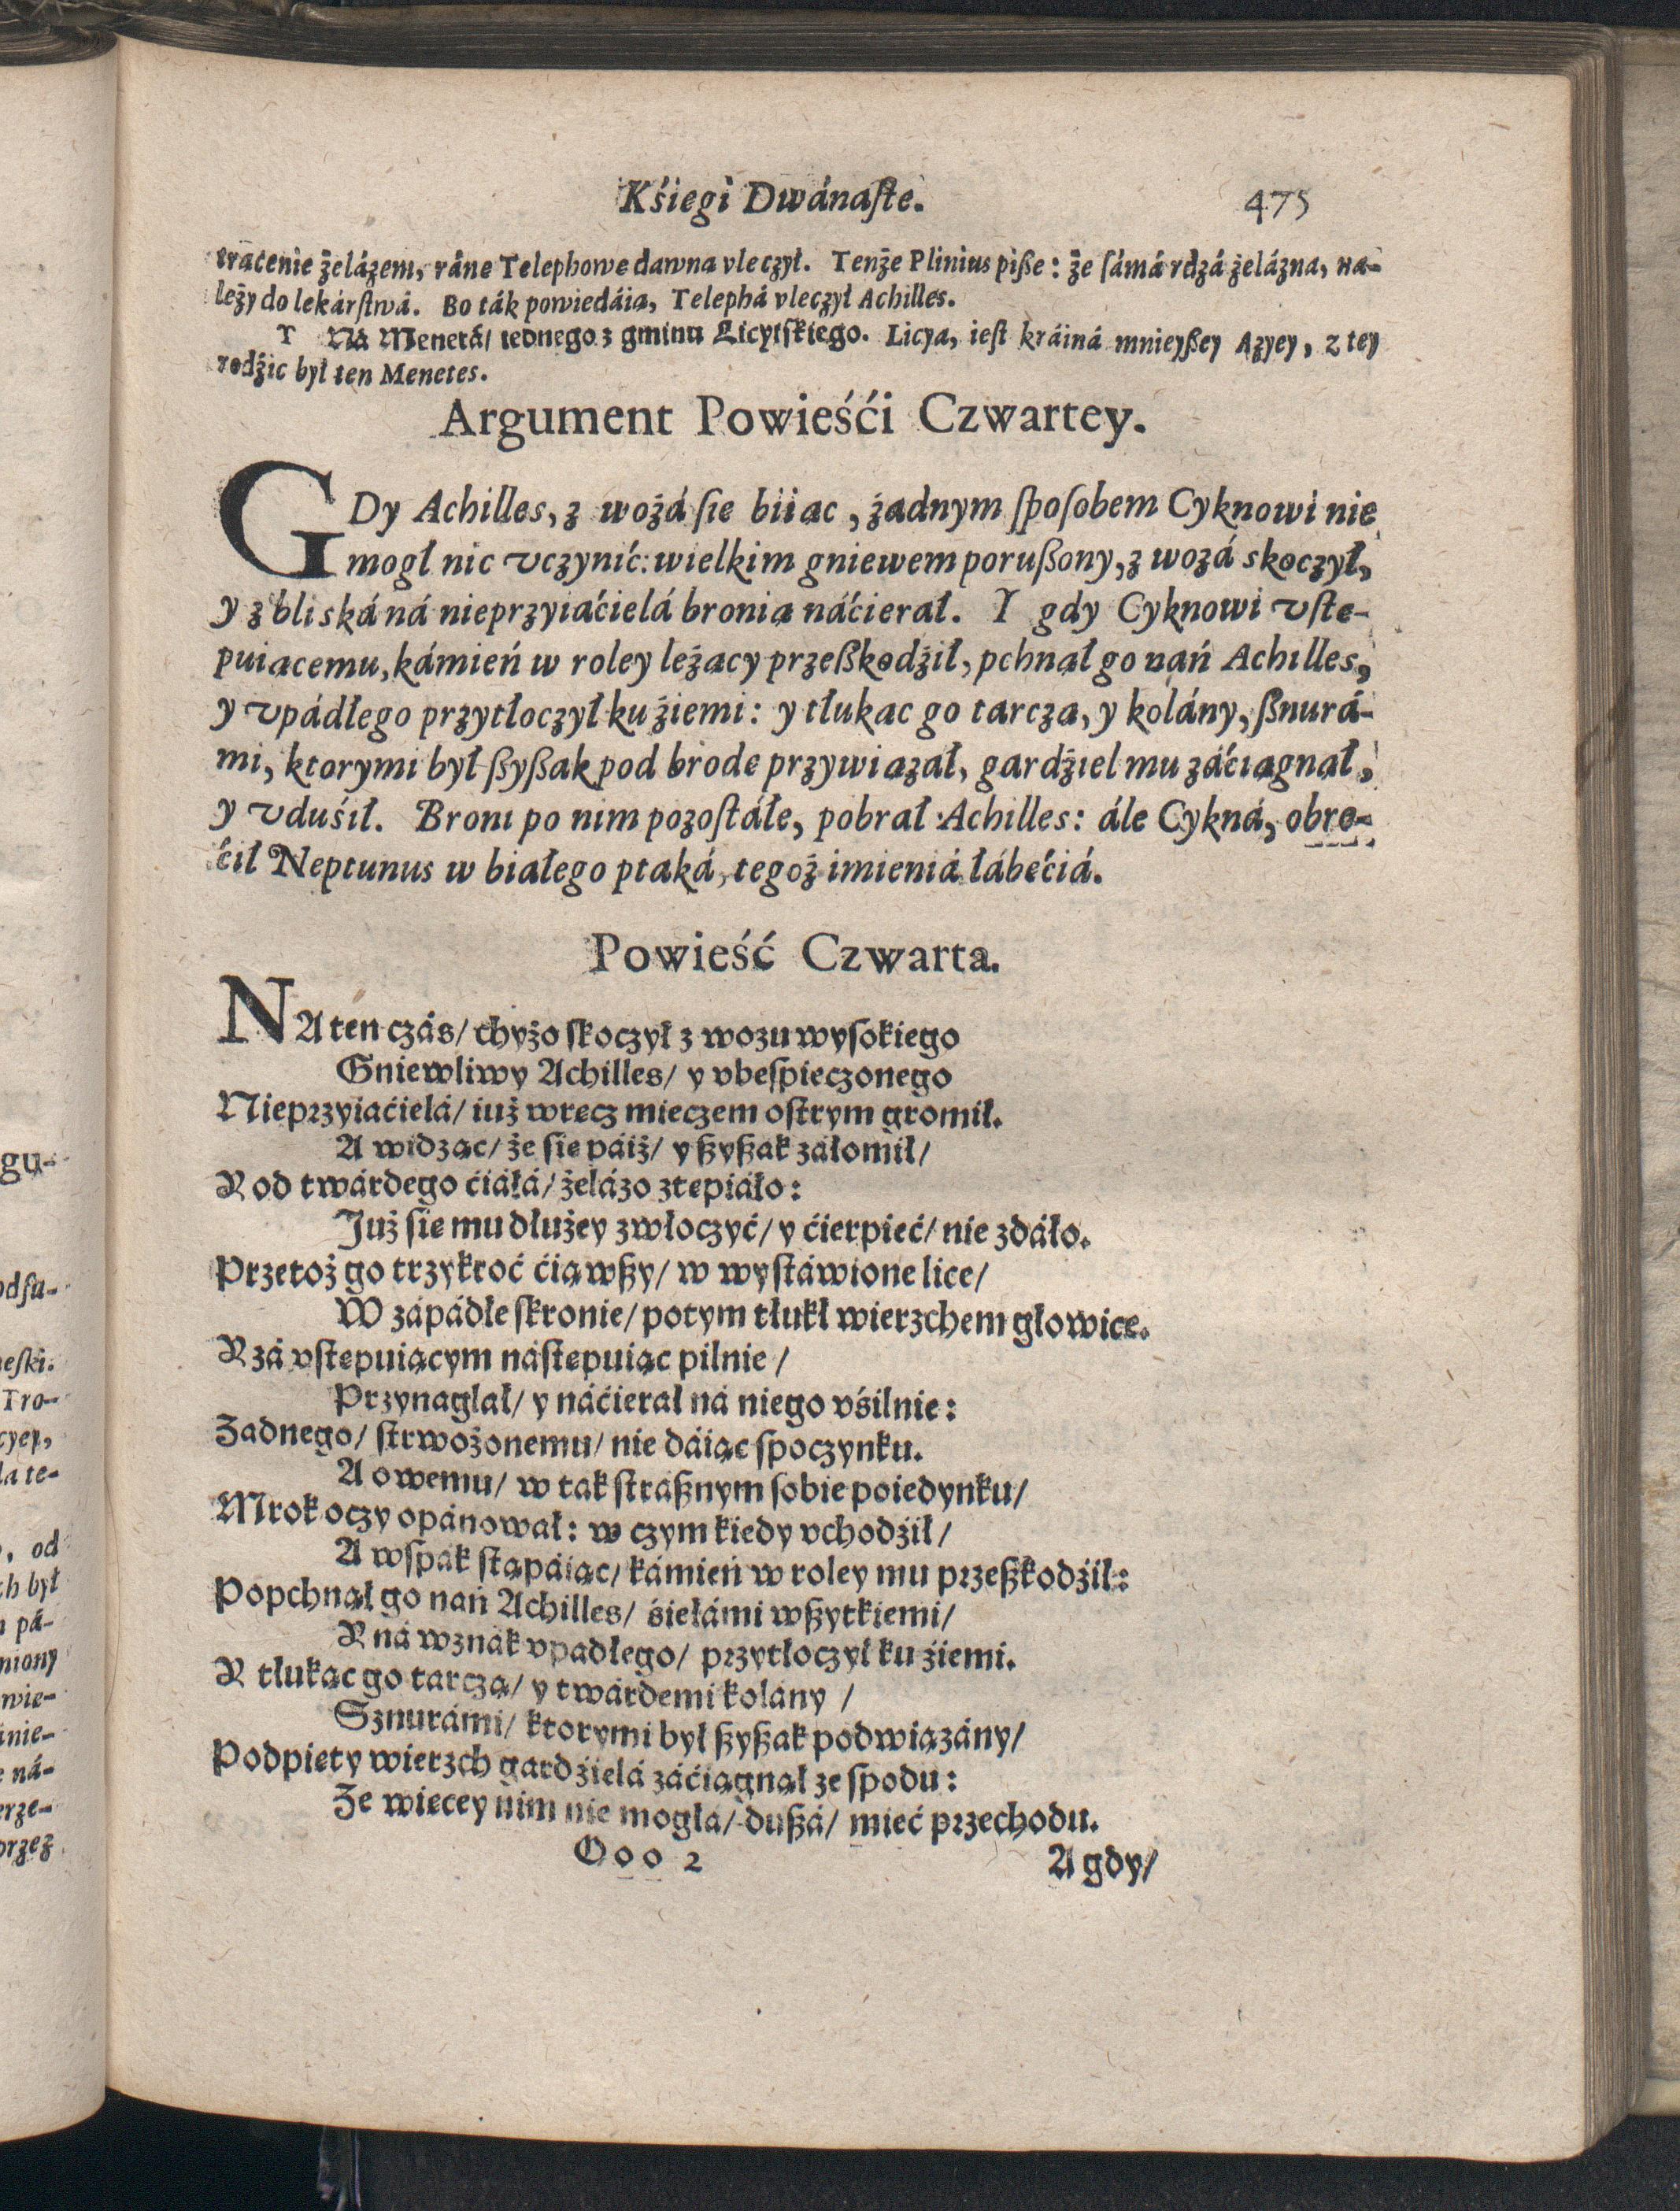 Kśiegi Dwánaſte.
475
tracenie żelázem, ráne Telephowe dawna vleczył. Tenże Plinius piße: że ſámá rdzá żelázna, na-
leży do lekárſtwá. Bo ták powiedáia, Telephá vleczył Achilles.
Y Ná Menetá/ iednego z gminu Licyiſkiego. Licya, ieſt kráiná mnieyßey Azyey, z tey
rodźic był ten Menetes.
Argument Powieśći Czwartey.
GDy Achilles, z wozá ſie biiąc, żadnym ſpoſobem Cyknowi nie
mogł nic vczynić: wielkim gniewem porußony, z wozá skoczył,
y z bliská ná nieprzyiaćielá bronią náćierał. I gdy Cyknowi vſte-
puiącemu, kámień w roley leżący przeßkodźił, pchnął go nań Achilles,
y vpádłego przytłoczył ku źiemi: y tłukac go tarczą, y kolány, ßnurá-
mi, ktorymi był ßyßak pod brode przywiązał, gardźiel mu záćiągnął,
y vduśił. Broni po nim pozoſtáłe, pobrał Achilles: ále Cykná, obro-
ćił Neptunus w białego ptaká, tegoż imieniá łábęćiá.
Powieść Czwarta.
NA ten czás/ chyżo ſkoczył z wozu wyſokiego
Gniewliwy Achilles/ y vbeſpieczonego
Nieprzyiaćielá/ iuż wręcz mieczem oſtrym gromił.
A widząc/ że ſie páiż/ y ßyßak záłomił/
Y od twárdego ćiáłá/ żelázo ztępiáło:
Już ſie mu dłużey zwłoczyć/ y ćierpieć/ nie zdáło.
Przetoż go trzykroć ćiąwßy/ w wyſtáwione lice/
W zápádłe ſkronie/ potym tłukł wierzchem głowice.
Y zá vſtępuiącym náſtępuiąc pilnie/
Przynaglał/ y náćierał ná niego vśilnie:
Żadnego/ ſtrwożonemu/ nie dáiąc ſpoczynku.
A owemu/ w tak ſtráßnym ſobie poiedynku/
Mrok oczy opánował: w czym kiedy vchodźił/
A wſpák ſtąpáiąc/ kámień w roley mu przeßkodźił:
Popchnął go nań Achilles/ śiełámi wßytkiemi/
Y ná wznák vpadłego/ przytłoczył ku źiemi.
Y tłukąc go tarczą/ y twárdemi kolány/
Sznurámi/ ktorymi był ßyßak podwiązány/
Podpięty wierzch gardźielá záćiągnął ze ſpodu:
Że więcey nim nie mogłá/ dußá/ mieć przechodu.
Ooo 2
A gdy/
gu-
odſu-
neſki.
Tro-
cyey,
la te-
, od
ch był
pá-
niony
wie-
nie-
ná-
erze-
przez